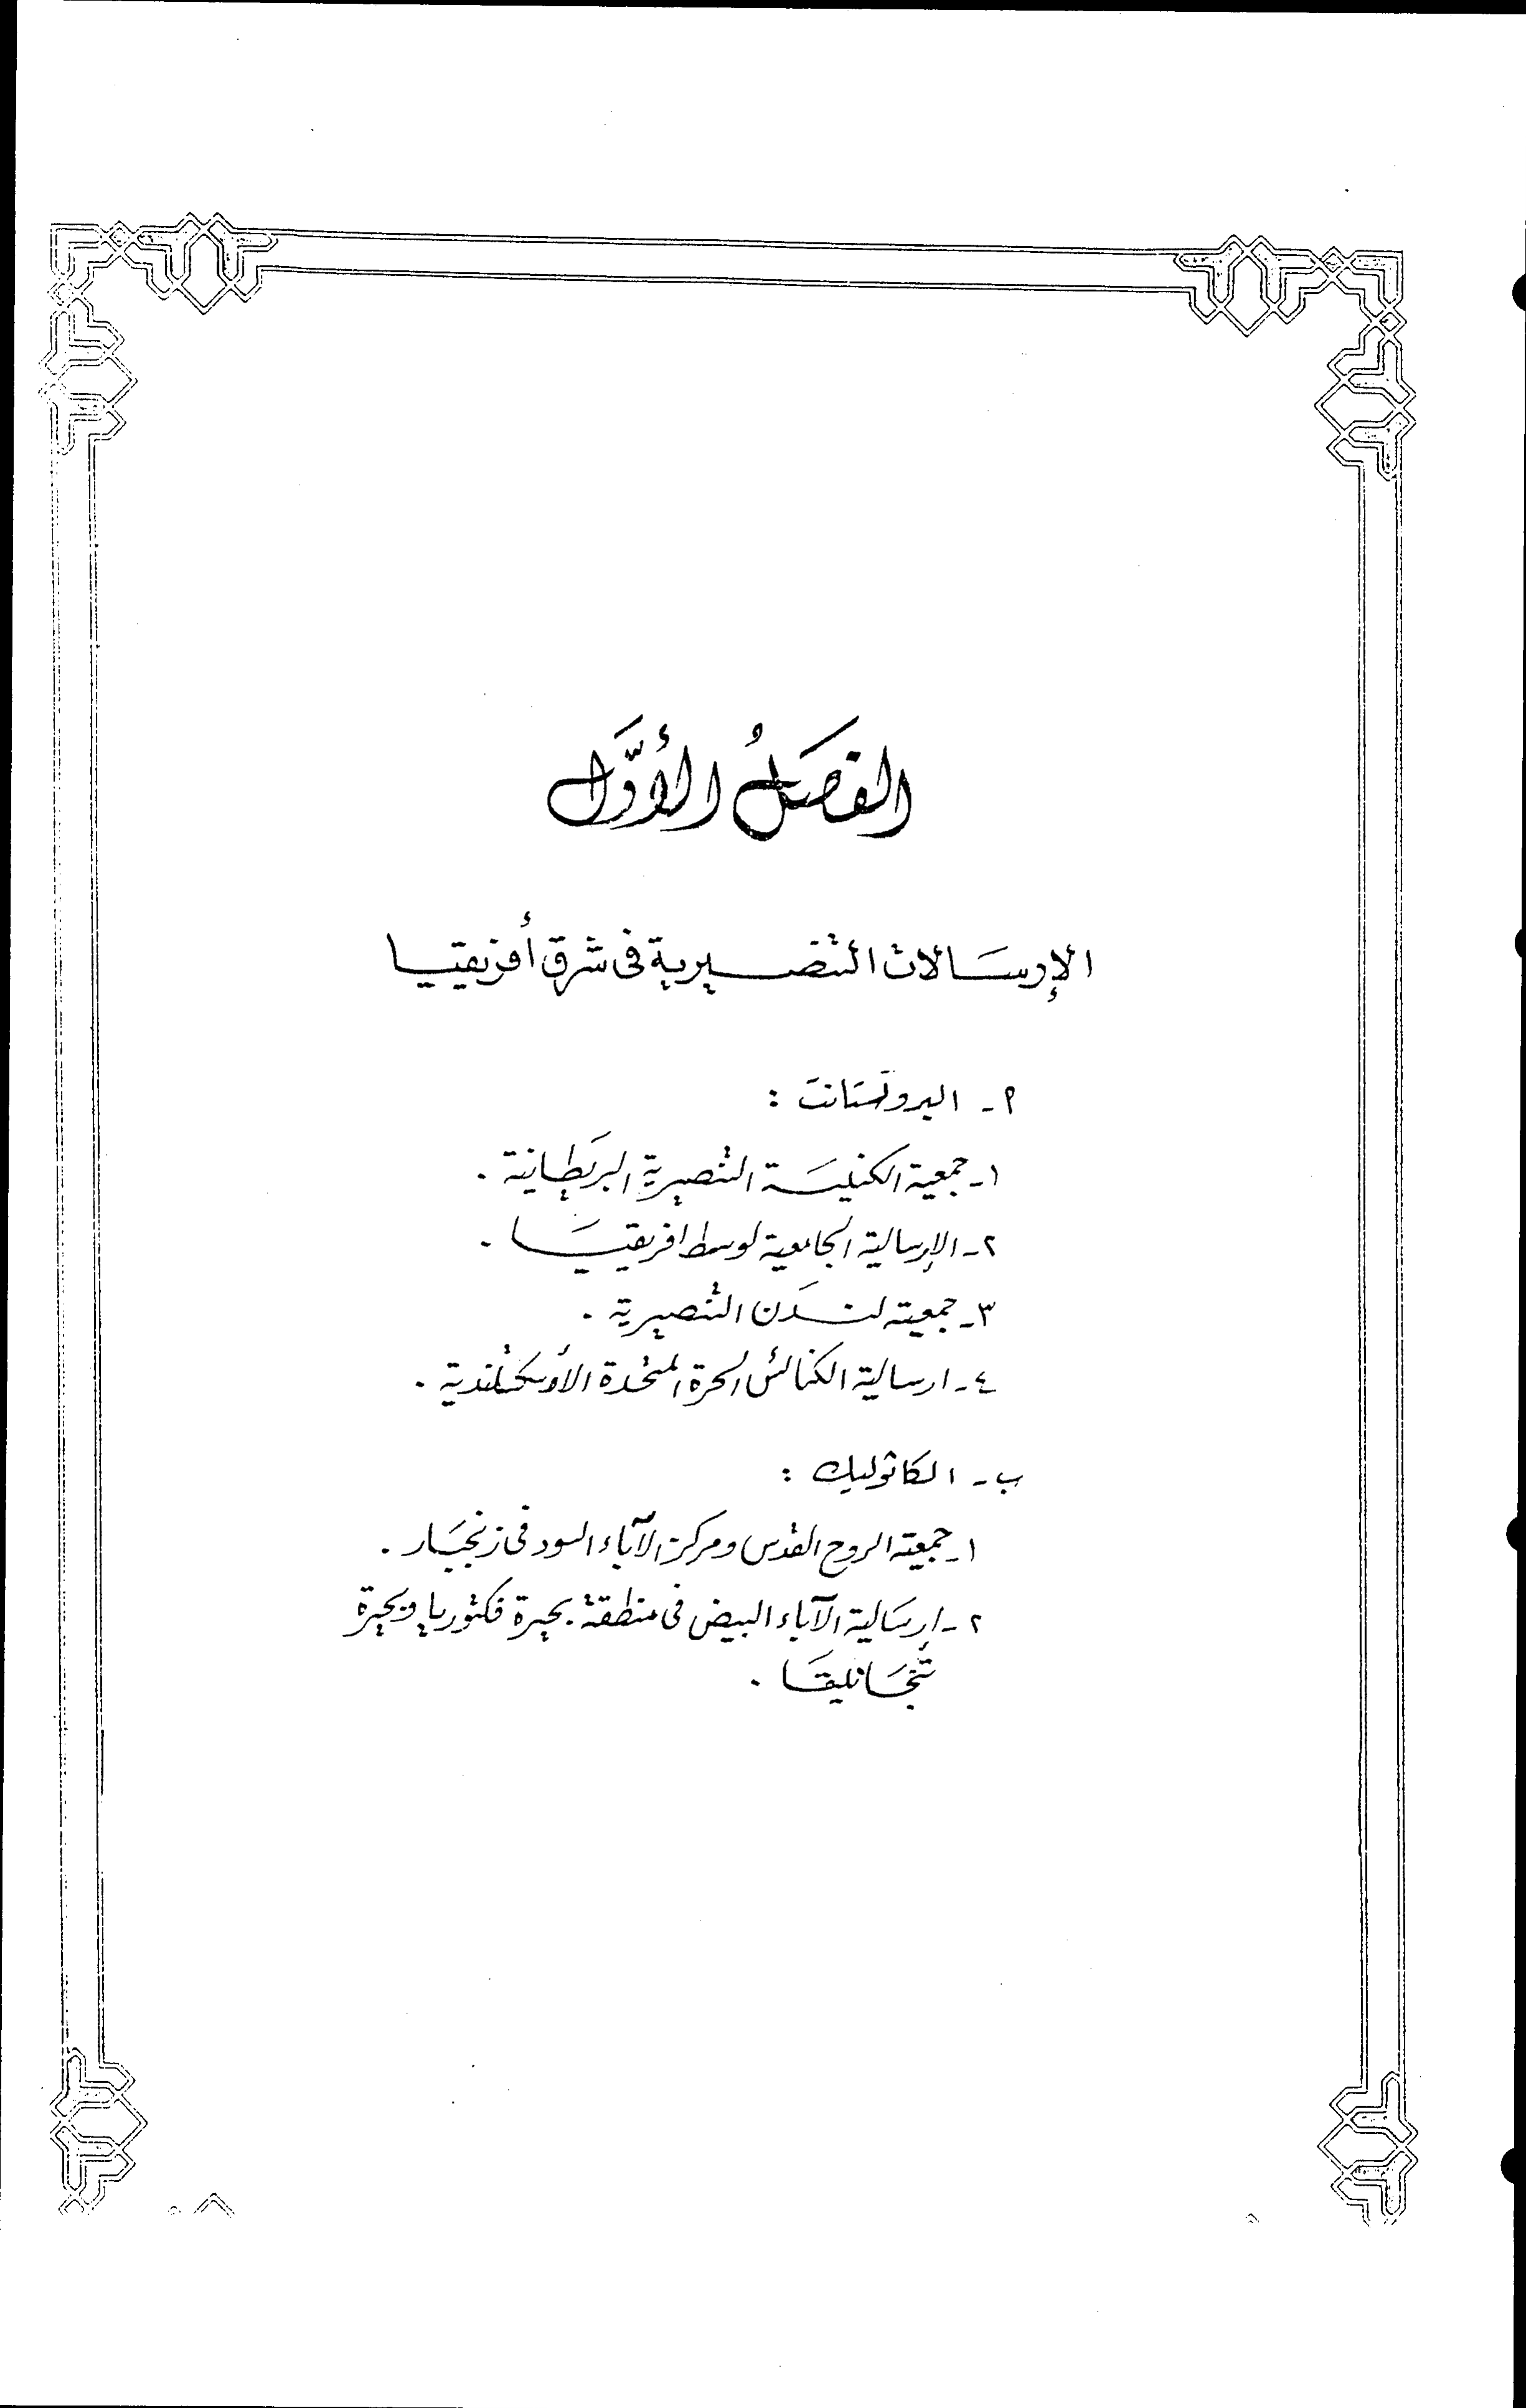 الفصَلُ الأوَّل
الإرسَالات التنصيرية فى شرق أفريقيا
٢ـ البروتستانت :
١ـ جمعية الكنيسَة التنصيرية البريَطانية .
٢ـ الإرسالية الجامعية لوسط افريقيَا .
٣ـ جمعية لندَن التنصيرية .
٤ـ ارسالية الكنائس الحرة المتحدة الأسكتلندية .
ب ـ الكاثوليك :
١ـ جمعية الروح القدس ومركز الآباء السود فى زنجبَار .
٢ـ إرسَالية الآباء البيض فى منطقة بحيرة فكتوريا وبحيرة
تنجَانيقَا .